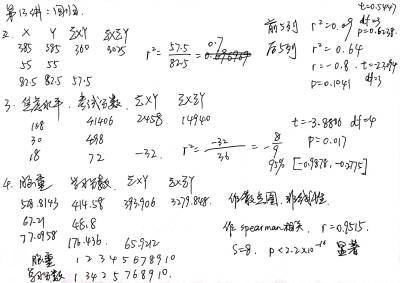 第13讲：
2. X Y ΣXY ΣXΣY
385 385 360 3025
55 55
82.5 82.5 57.5
r² = 57.5/82.5 = 0.7
前5列 r²=0.09 t=0.5447 df=3 p=0.6238
后5列 r²=0.64 r=-0.8 t=-2.3094 df=3 p=0.1041
3. 焦虑水平 考试分数 ΣXY ΣXΣY
168 41406 2458 14940
30 498
18 72 -32
r² = -32/36 = -8/9
t=-3.8806 df=4
p=0.017
95% [-0.9878, -0.2775]
4. 脑重 学习分数 ΣXY ΣXΣY
518.8143 414.58 393.906 3279.848
67.21 48.8
77.0958 176.436 65.9212
脑重 1 2 3 4 5 6 7 8 9 10
学习分数 1 3 4 2 5 7 6 8 9 10
作散点图，非线性
作 spearman 相关， r=0.9515
S=8 p<2.2×10⁻¹⁶ 显著